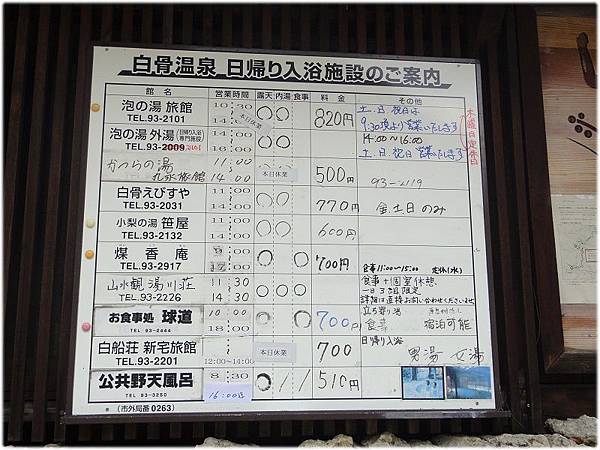 白骨温泉 日帰り入浴施設のご案内
館名 営業時間 露天 内湯 食事 料金 その他
泡の湯 旅館 10:30 14: 820円 土、日、祝日は
TEL.93-2101 本日休業 9:30頃より営業いたします
泡の湯 外湯 (日帰り入浴専門施設) 14:00~16:00
TEL.93-2009 16:00 土、日、祝日 営業いたします
木曜日定休日
かつらの湯 11:00 本日休業 500円 93-2119
丸永旅館 14:00
白骨えびすや 11:00 770円 金土日のみ
TEL.93-2031 14:00
小梨の湯 笹屋 11:00 600円
TEL.93-2132 14:00
煤香庵 9:00 700円
TEL.93-2917 食事11:00~15:00 定休(水)
山水観 湯川荘 11:30 食事+個室休憩
TEL.93-2226 14:30 一日3組限定
詳細は直接お問い合わせくださいませ
お食事処 球道 10:00 700円 立ち寄り湯
TEL 93-2444 18:00 食事 宿泊可能
白船荘 新宅旅館 本日休業 700 日帰り入浴
TEL.93-2201 12:00~14:00 男湯 女湯
公共野天風呂 8:30 510円
TEL 93-3250 16:00
(市外局番 0263)